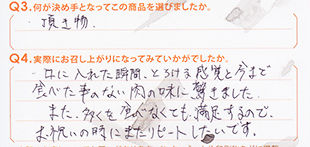 Q3.何が決め手となってこの商品を選びましたか。
・頂き物
Q4.実際にお召し上がりになってみていかがでしたか。
・口に入れた瞬間、とろける感覚と今まで
食べた事のない肉の味に驚きました。
また、多くを食べなくても満足するので、
お祝いの時にまたリピートしたいです。